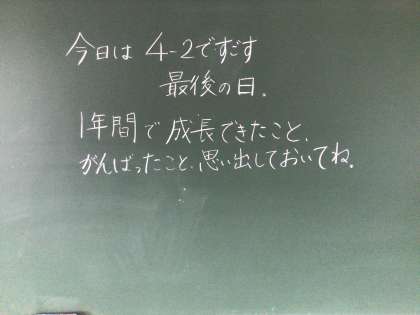 今日は 4-2ですごす
最後の日.
1年間で成長できたこと、
がんばったこと、思い出しておいてね.